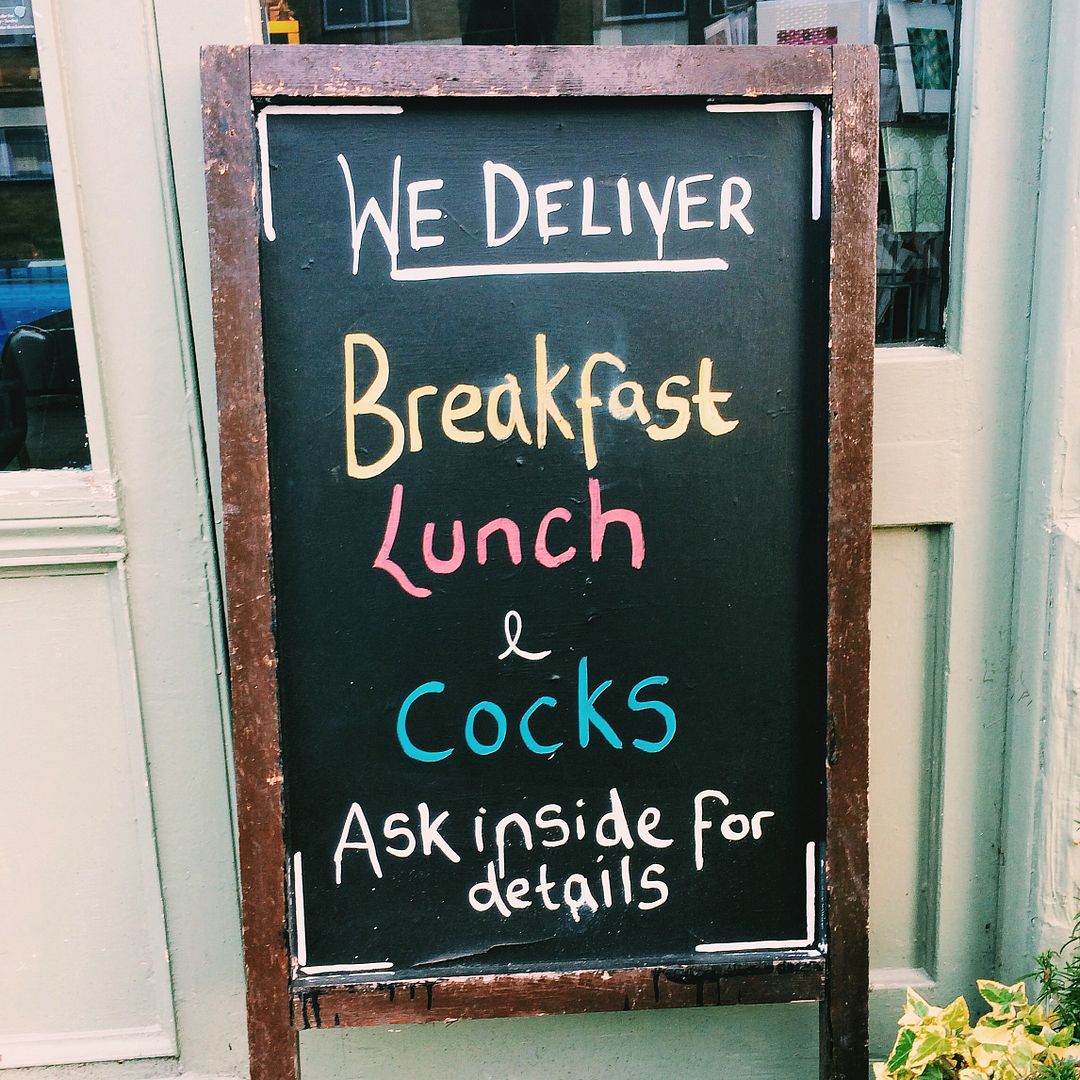 WE DELIVER
Breakfast
Lunch
&
Cocks
Ask inside for
details